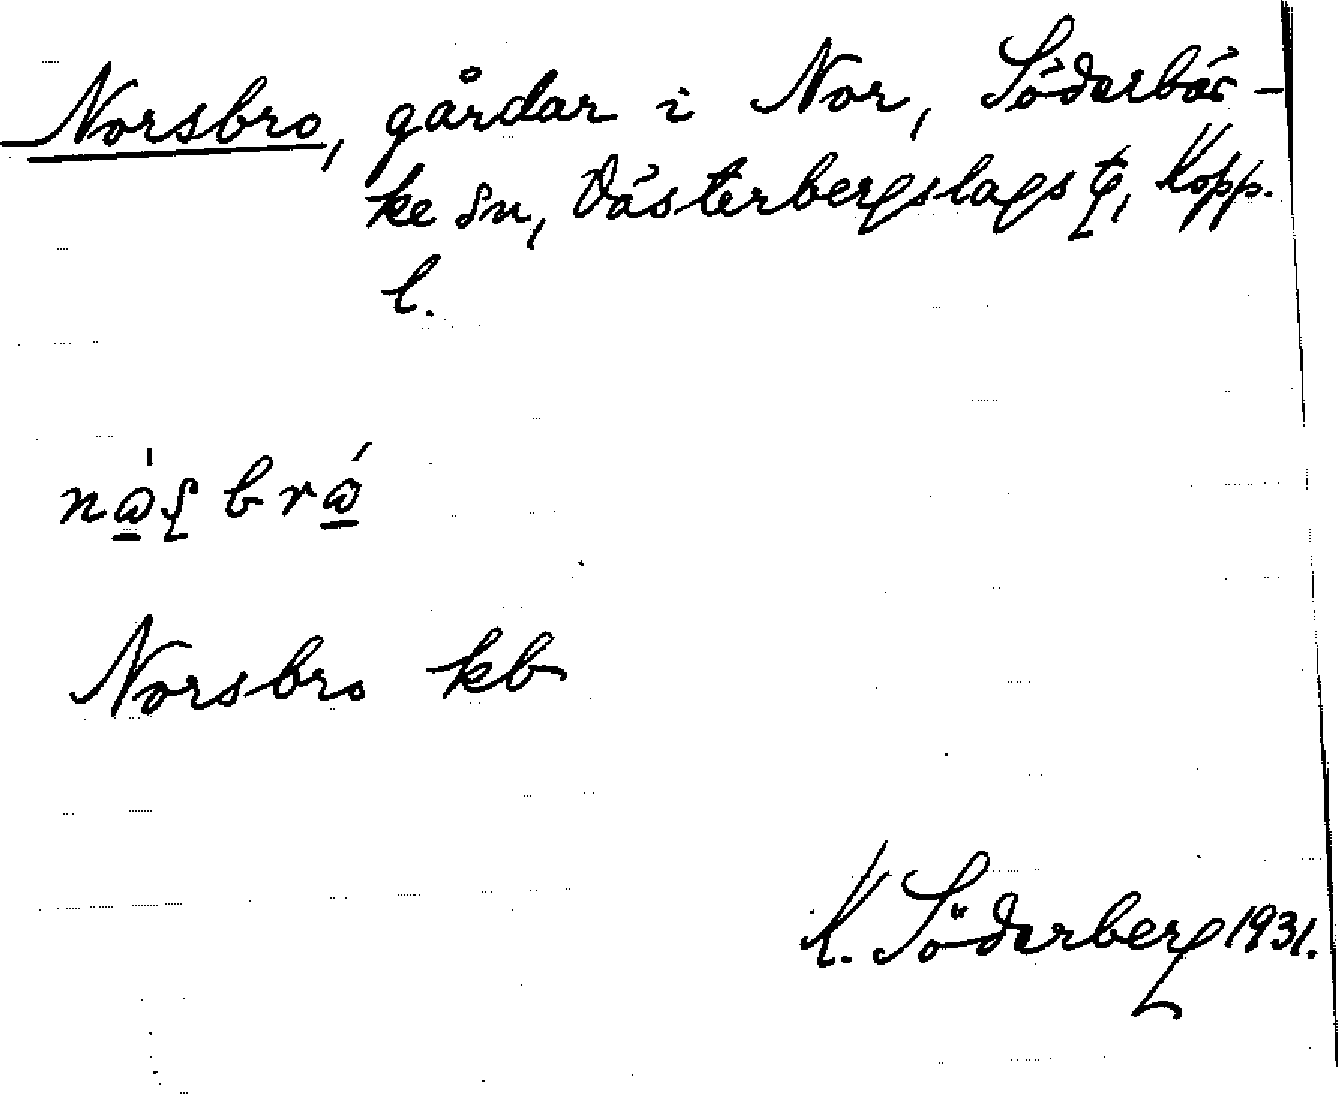 Norsbro, gårdar i Nor, Söderbär-
ke sn, Västerbergslags tg, Kopp.
l.
Norsbro kb
K. Söderberg 1931.